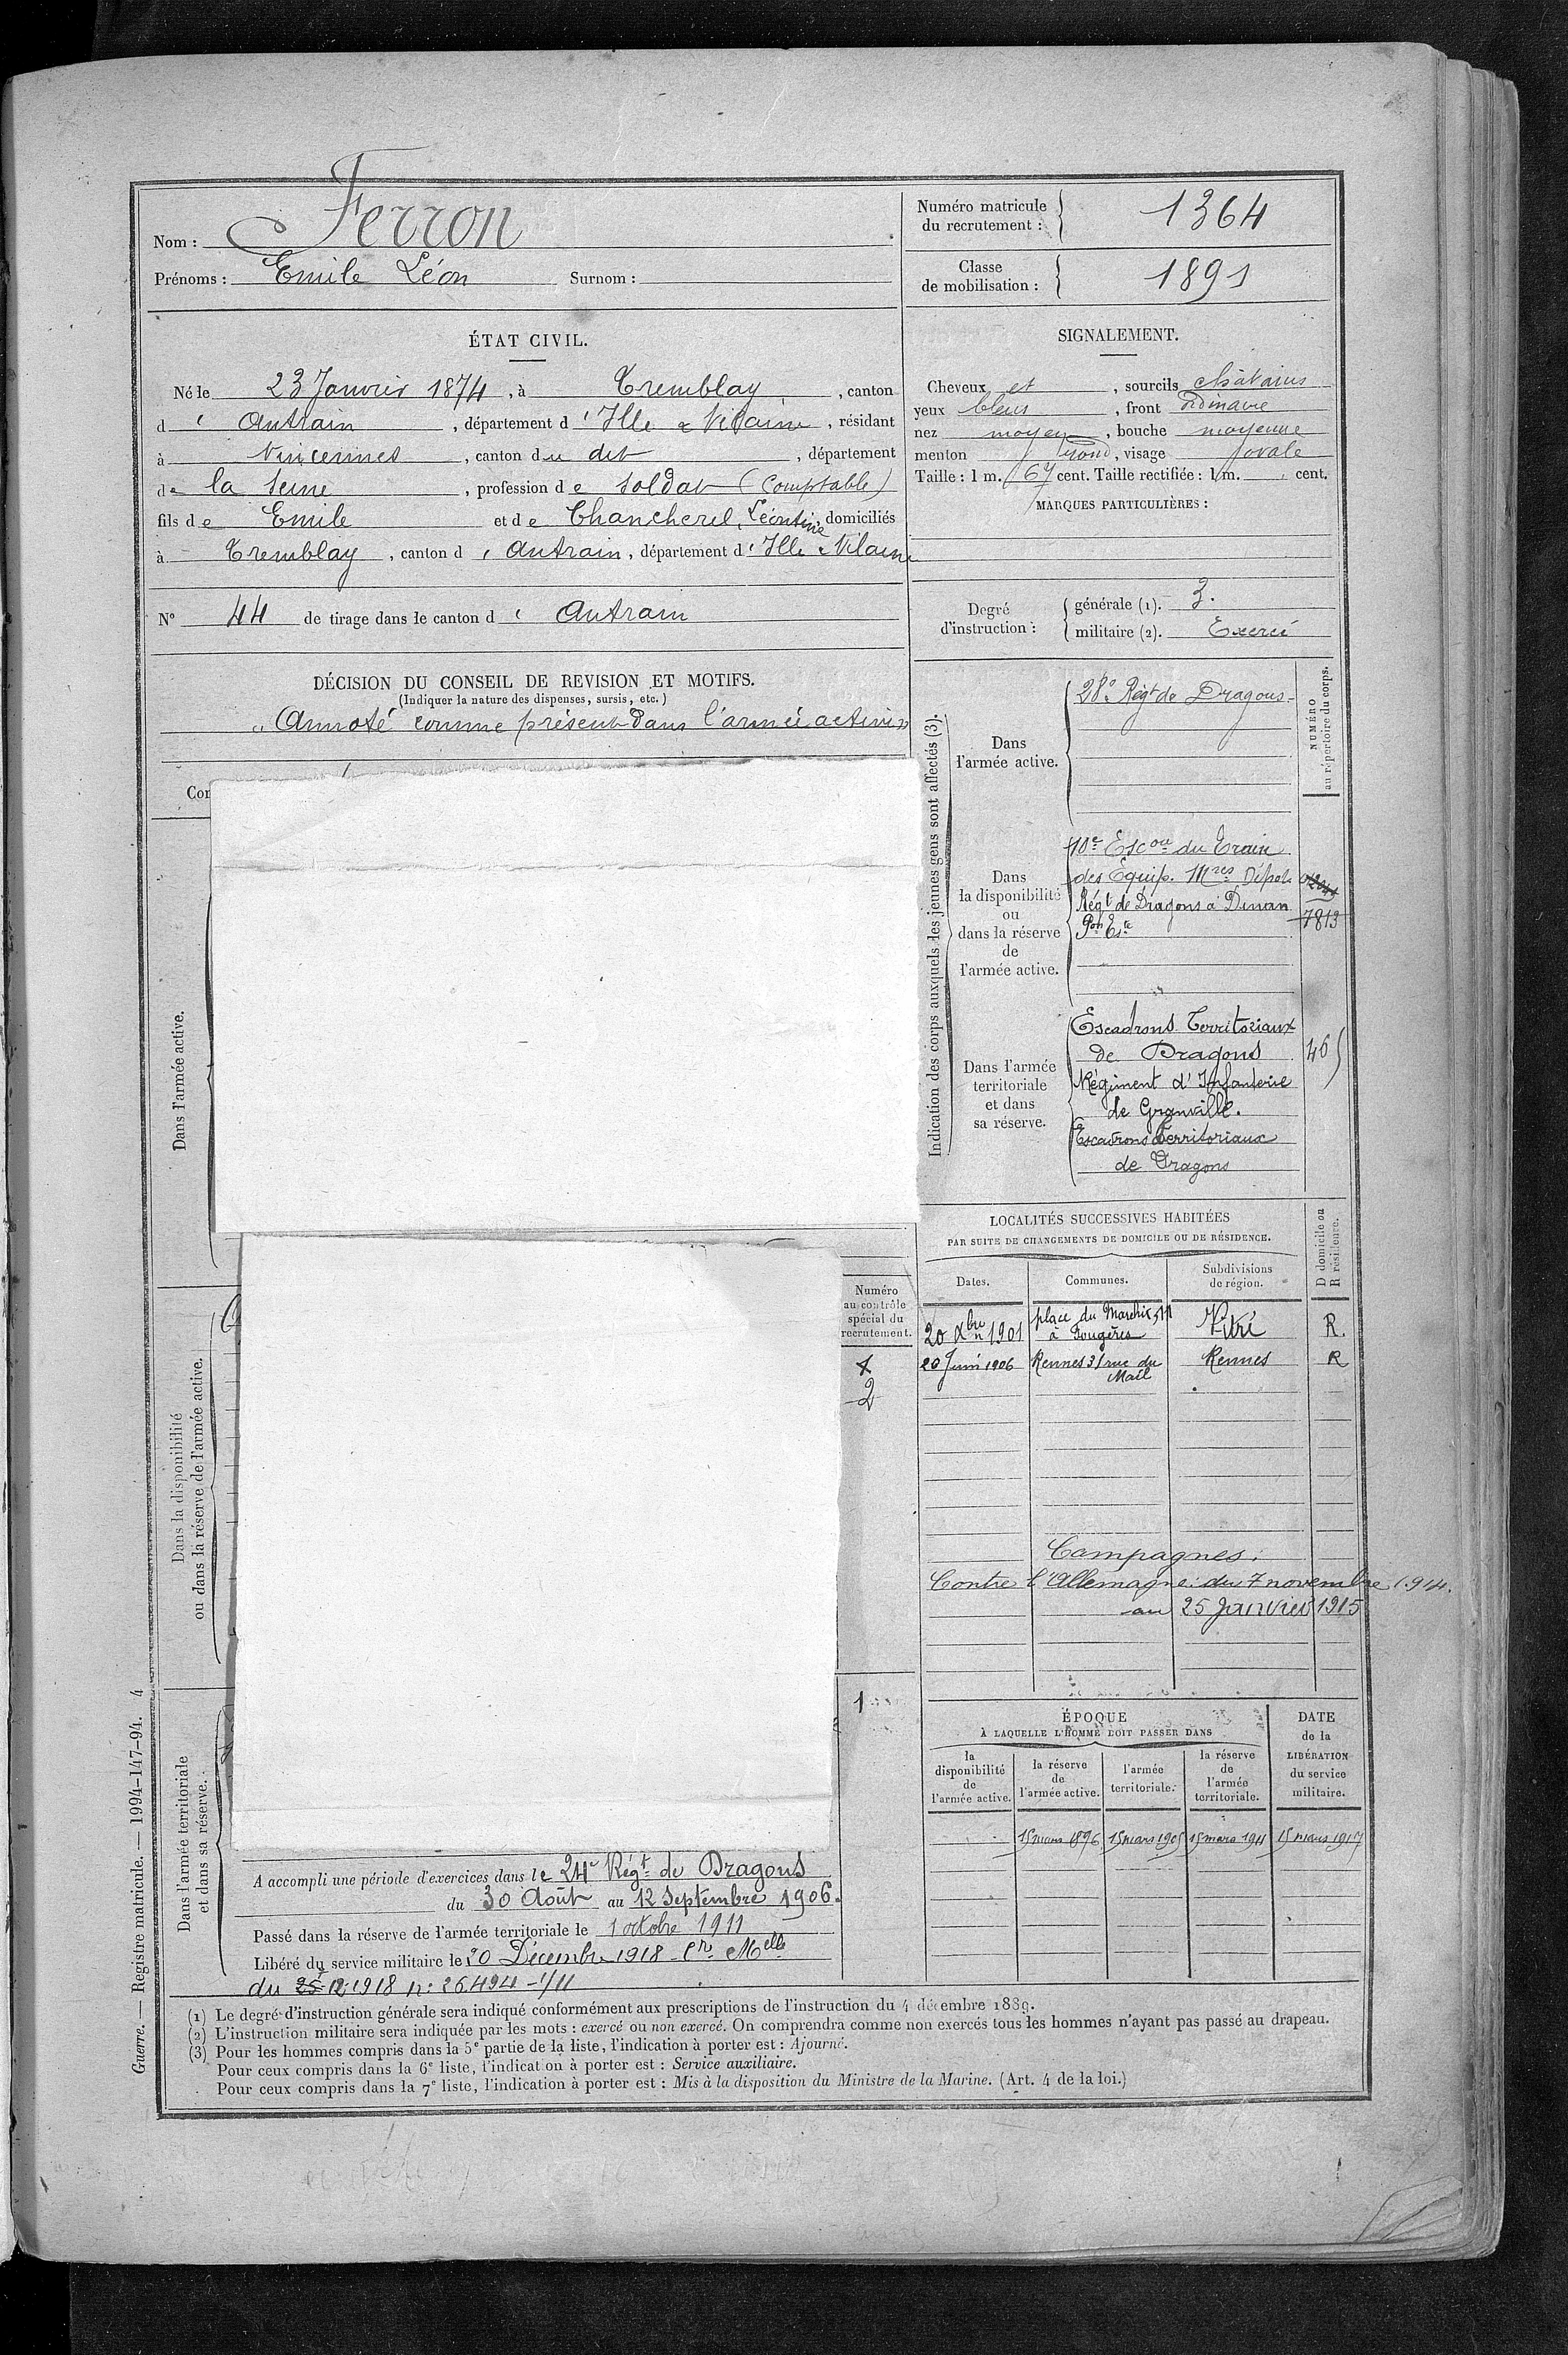 Nom : Ferron
Prénoms : Emile Léon Surnom :
Numéro matricule du recrutement : 1364
Classe de mobilisation : 1891
ÉTAT CIVIL.
Né le 23 Janvier 1874, à Tremblay, canton
d' Antrain, département d'Ille & Vilaine, résidant
à Vincennes, canton du dit, département
de la Seine, profession de soldat (Comptable)
fils de Emile et de Chancherel, Léontine, domiciliés
à Tremblay, canton d' Antrain, département d'Ille & Vilaine
N° 44 de tirage dans le canton d' Antrain
SIGNALEMENT.
Cheveux et, sourcils châtains
yeux bleus, front ordinaire
nez moyen, bouche moyenne
menton rond, visage ovale
Taille : 1 m. 67 cent. Taille rectifiée : 1 m. cent.
MARQUES PARTICULIÈRES :
Degré d'instruction :
générale (1). 3.
militaire (2). Exercé
DÉCISION DU CONSEIL DE REVISION ET MOTIFS.
(Indiquer la nature des dispenses, sursis, etc.)
"Annoté comme présent dans l'armée active"
Cor
Dans l'armée active.
Dans la disponibilité
ou dans la réserve de l'armée active.
Dans l'armée territoriale
et dans sa réserve.
Indication des corps auxquels les jeunes gens sont affectés (3).
NUMÉRO
au répertoire du corps.
Dans
l'armée active.
28e Régt de Dragons
Dans
la disponibilité
ou
dans la réserve
de
l'armée active.
10e Escon du Train
des Equip. Mres Dépôt
Régt de Dragons à Dinan
7813
Dans l'armée
territoriale
et dans
sa réserve.
Escadrons Territoriaux
de Dragons 46
Régiment d'Infanterie
de Granville.
Escadrons Territoriaux
de Dragons
LOCALITÉS SUCCESSIVES HABITÉES
PAR SUITE DE CHANGEMENTS DE DOMICILE OU DE RÉSIDENCE.
Dates. Communes. Subdivisions de région. D domicile ou R résidence.
20 Xbre 1901 place du Marchix, à Fougères Vitré R.
20 Juin 1906 Rennes 31 rue du Mail Rennes R
Numéro
au contrôle
spécial du
recrutement.
2
1
Campagnes :
Contre l'Allemagne : du 7 novembre 1914.
au 25 Janvier 1915
ÉPOQUE
À LAQUELLE L'HOMME DOIT PASSER DANS
la disponibilité de l'armée active.
la réserve de l'armée active.
l'armée territoriale.
la réserve de l'armée territoriale.
DATE de la LIBÉRATION du service militaire.
15 mars 1896 15 mars 1905 15 mars 1911 15 mars 1917
A accompli une période d'exercices dans le 24e Régt de Dragons
du 30 Août au 12 Septembre 1906.
Passé dans la réserve de l'armée territoriale le 1 octobre 1911
Libéré du service militaire le 20 Décembre 1918 Cre Melle
du 25-12-1918 n: 26.494-1/11
(1) Le degré d'instruction générale sera indiqué conformément aux prescriptions de l'instruction du 4 décembre 1889.
(2) L'instruction militaire sera indiquée par les mots : exercé ou non exercé. On comprendra comme non exercés tous les hommes n'ayant pas passé au drapeau.
(3) Pour les hommes compris dans la 5e partie de la liste, l'indication à porter est : Ajourné.
Pour ceux compris dans la 6e liste, l'indication à porter est : Service auxiliaire.
Pour ceux compris dans la 7e liste, l'indication à porter est : Mis à la disposition du Ministre de la Marine. (Art. 4 de la loi.)
Guerre. — Registre matricule. — 1994-147-94. 4